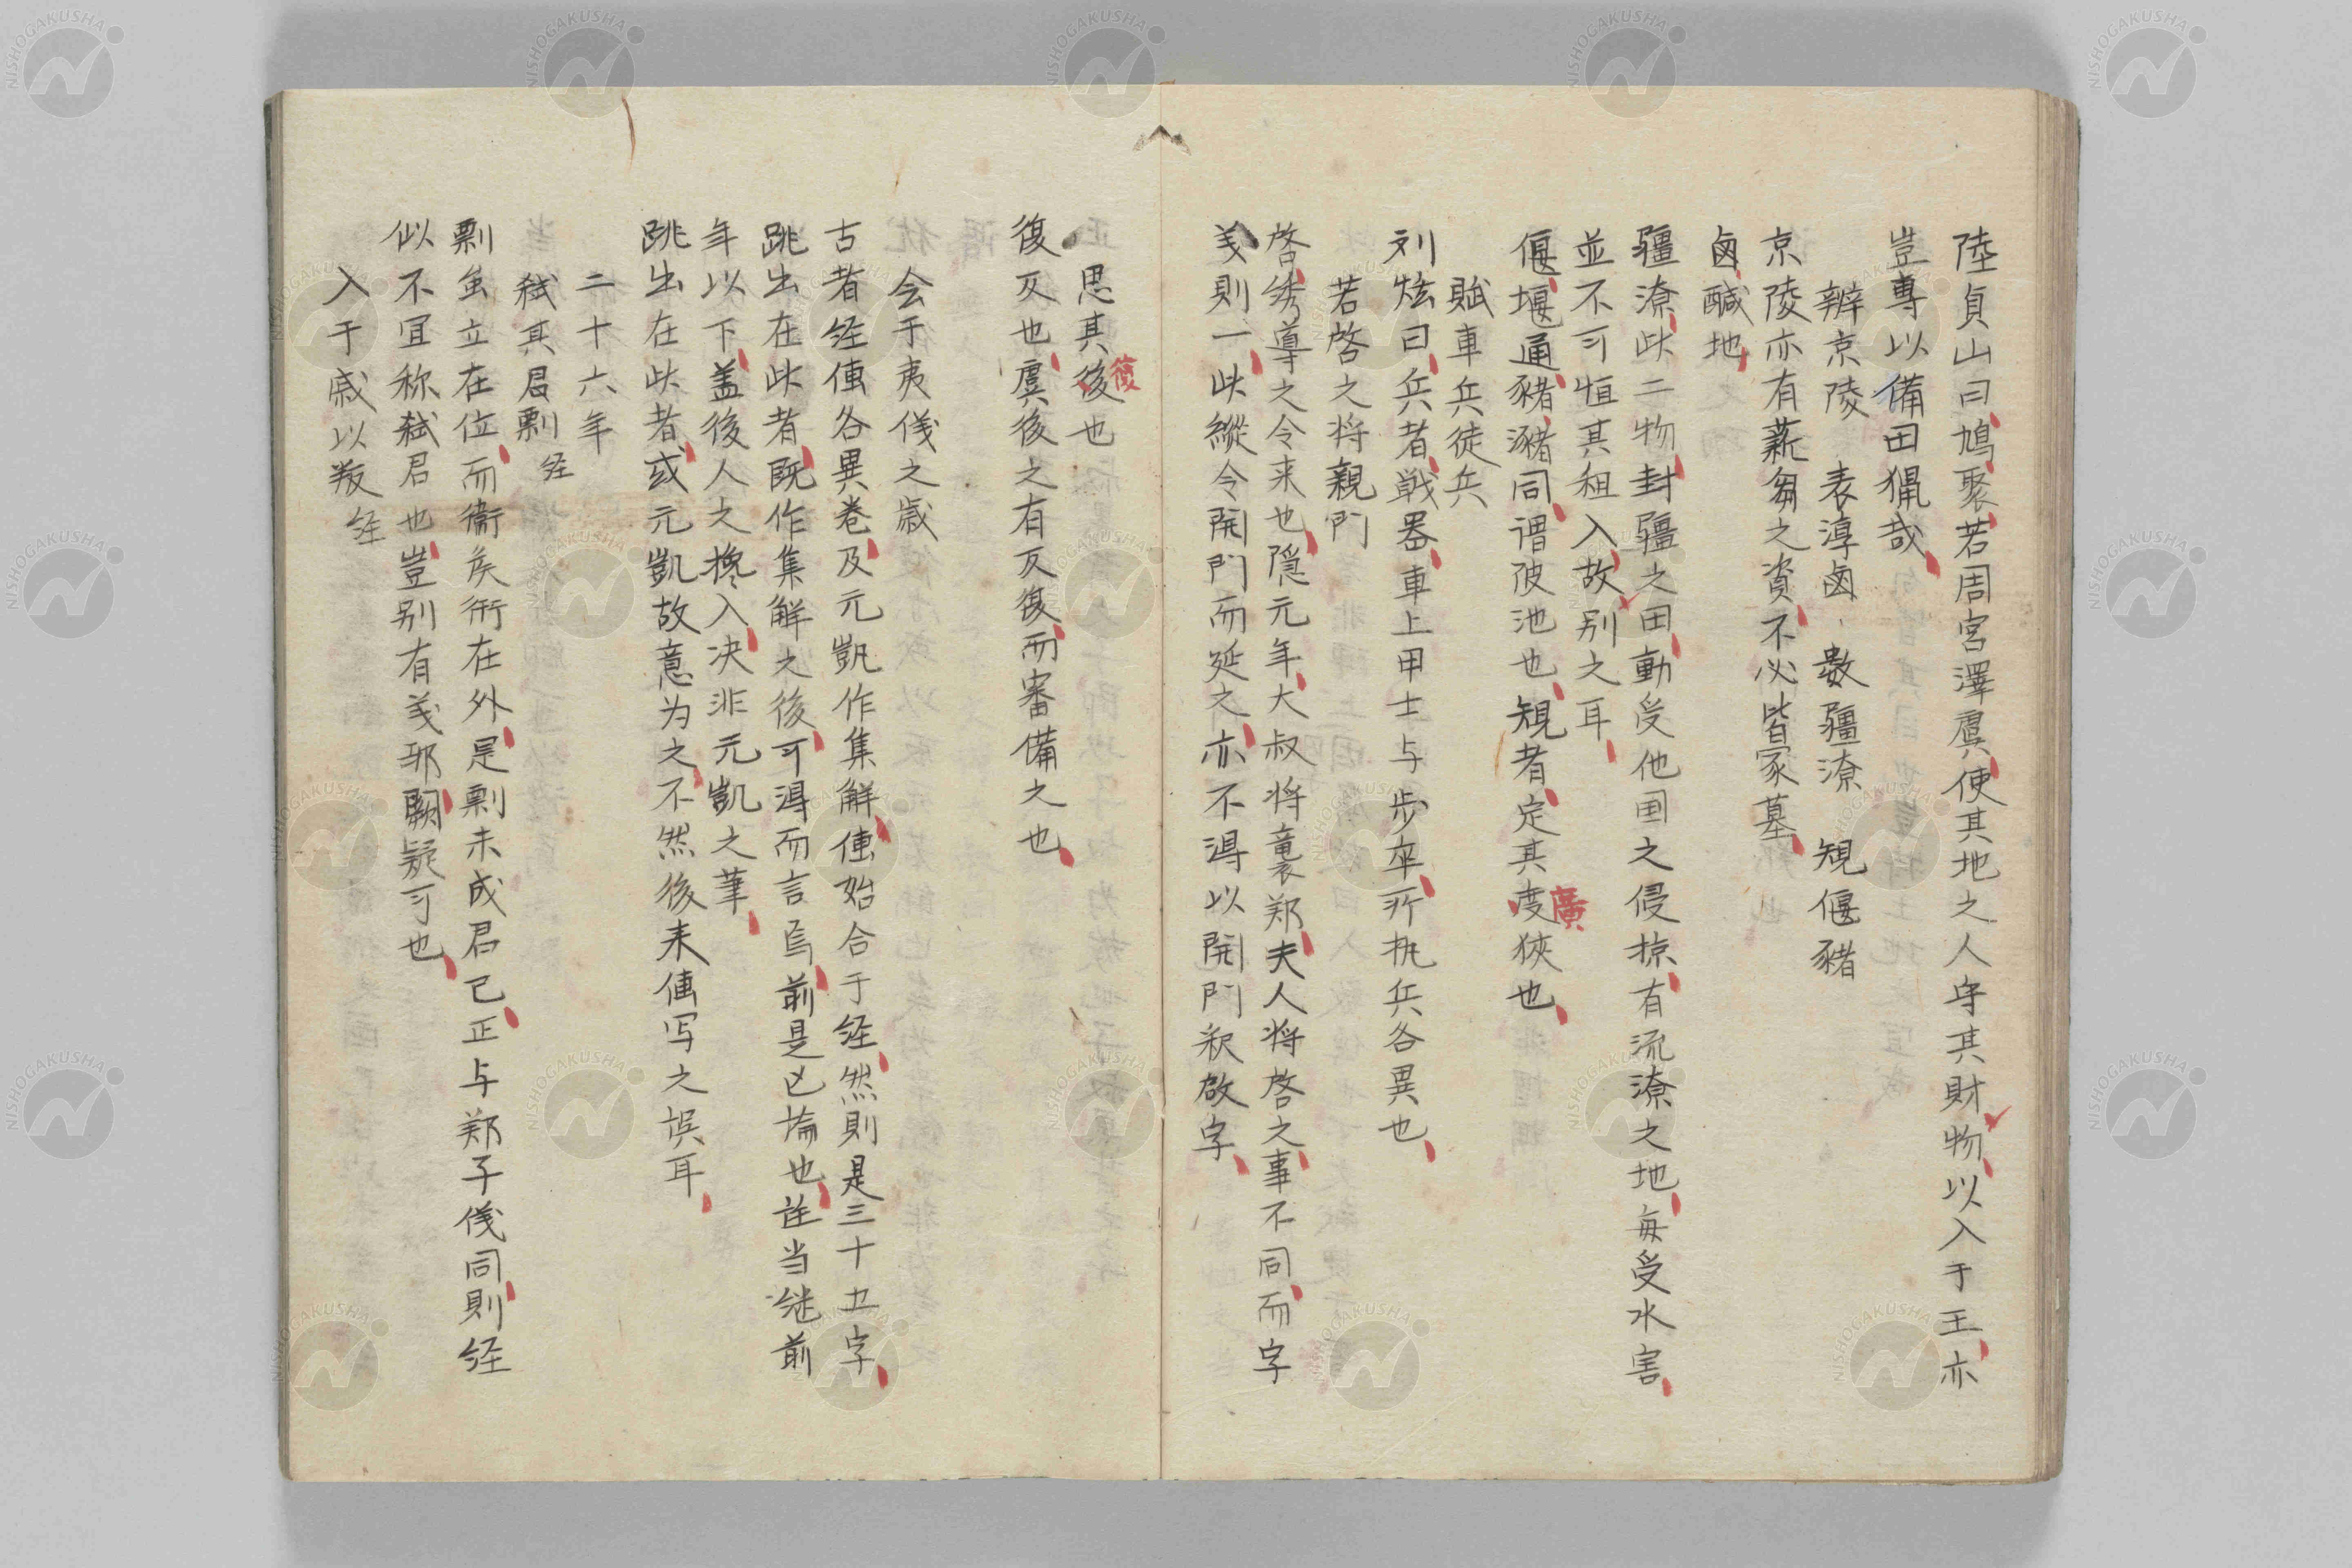 陸貞山曰鳩聚若周宮澤虞使其地之人守其財物以入于王亦
豈專以備田猟哉
辨京陵　表淳鹵　數疆潦　規偃豬
京陵亦有薪芻之資不必皆冢墓
鹵醎地
疆潦此二物封疆之田動受他国之侵掠有流潦之地每受水害
並不可恒其租入故別之耳
偃堰通豬瀦同谓陂池也規者定其度狹也
廣
賦車兵徒兵
刘炫曰兵者戦器車上甲士与步卒所执兵各異也
若啓之将親門
啓綉導之令来也隠元年大叔将襲郑夫人将啓之事不同而字
义則一此縱令開門而延之亦不得以開門釈啟字
思其後也
復
復反也虞後之有反復而審備之也
会于夷儀之歳
古者经傳各異卷及元凱作集解傳始合于经然則是三十五字
跳出在此者既作集解之後可得而言焉前是已㘯也註当継前
年以下盖後人之攙入决非元凱之筆
跳出在此者或元凱故意为之不然後来傳写之誤耳
二十六年
弑其君剽 经
剽虽立在位而衞侯衎在外是剽未成君已正与郑子儀同則经
似不宜称弑君也豈别有义耶闕疑可也
入于戚以叛 经
NISHOGAKUSHA